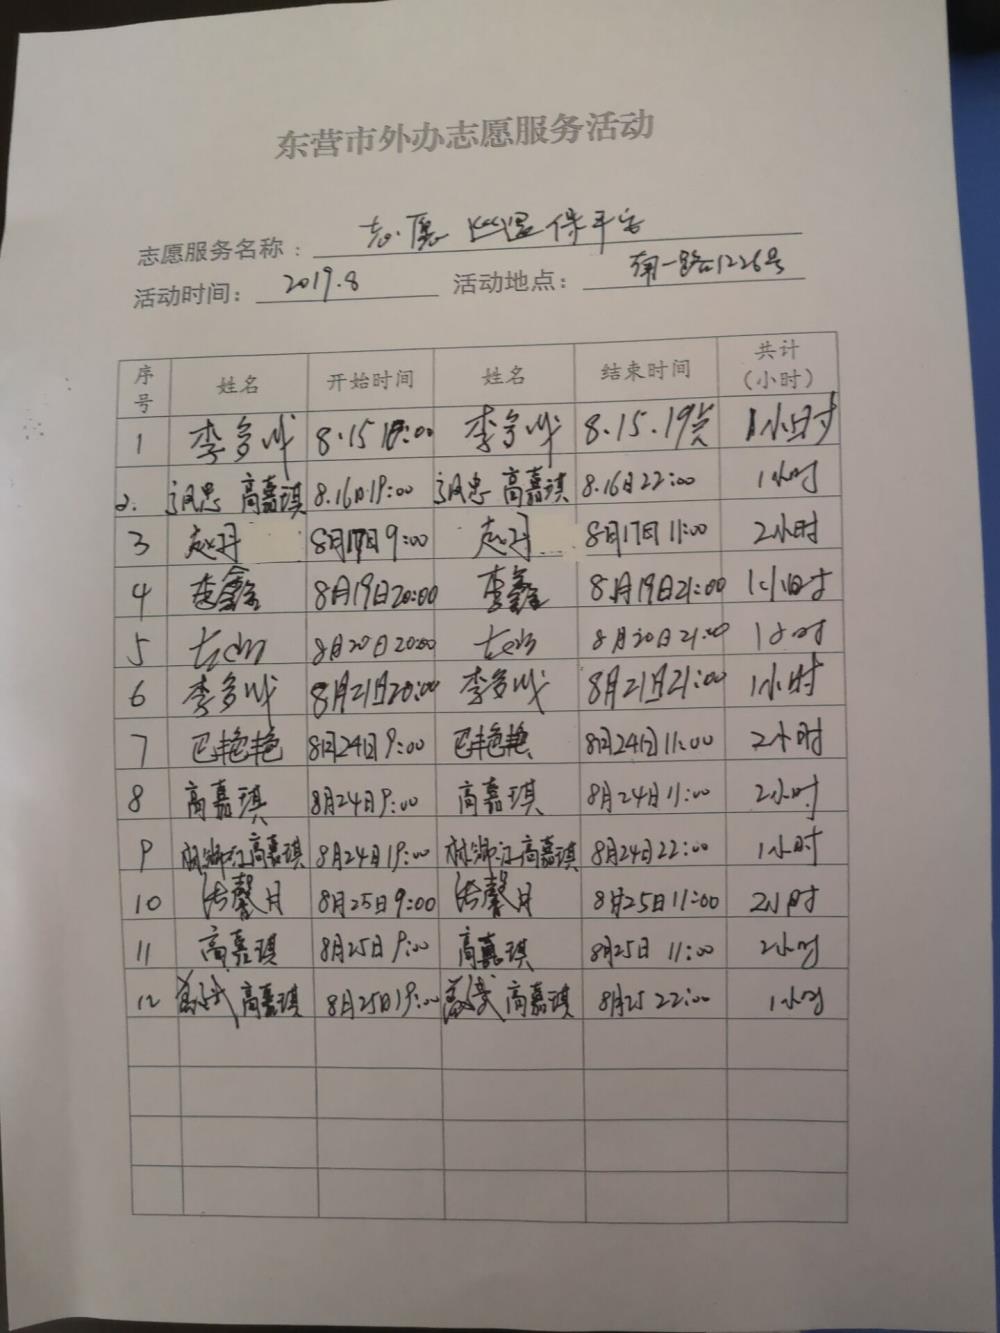 东营市外办志愿服务活动
志愿服务名称: 志愿巡逻保平安
活动时间: 2019.8 活动地点: 一路1226号
序号 姓名 开始时间 姓名 结束时间 共计（小时）
1 李 8.15 18:00 李 8.15.19点 1小时
2. 高嘉琪 8.16日19:00 高嘉琪 8.16日22:00 1小时
3 赵丹 8月17日9:00 赵丹 8月17日11:00 2小时
4 李鑫 8月19日20:00 李鑫 8月19日21:00 1小时
5 8月20日20:00 8月20日21:00 1小时
6 李 8月21日20:00 李 8月21日21:00 1小时
7 巴艳艳 8月24日9:00 巴艳艳 8月24日11:00 2小时
8 高嘉琪 8月24日9:00 高嘉琪 8月24日11:00 2小时
9 高嘉琪 8月24日19:00 高嘉琪 8月24日22:00 1小时
10 馨月 8月25日9:00 馨月 8月25日11:00 2小时
11 高嘉琪 8月25日9:00 高嘉琪 8月25日 11:00 2小时
12 高嘉琪 8月25日19:00 高嘉琪 8月25 22:00 1小时